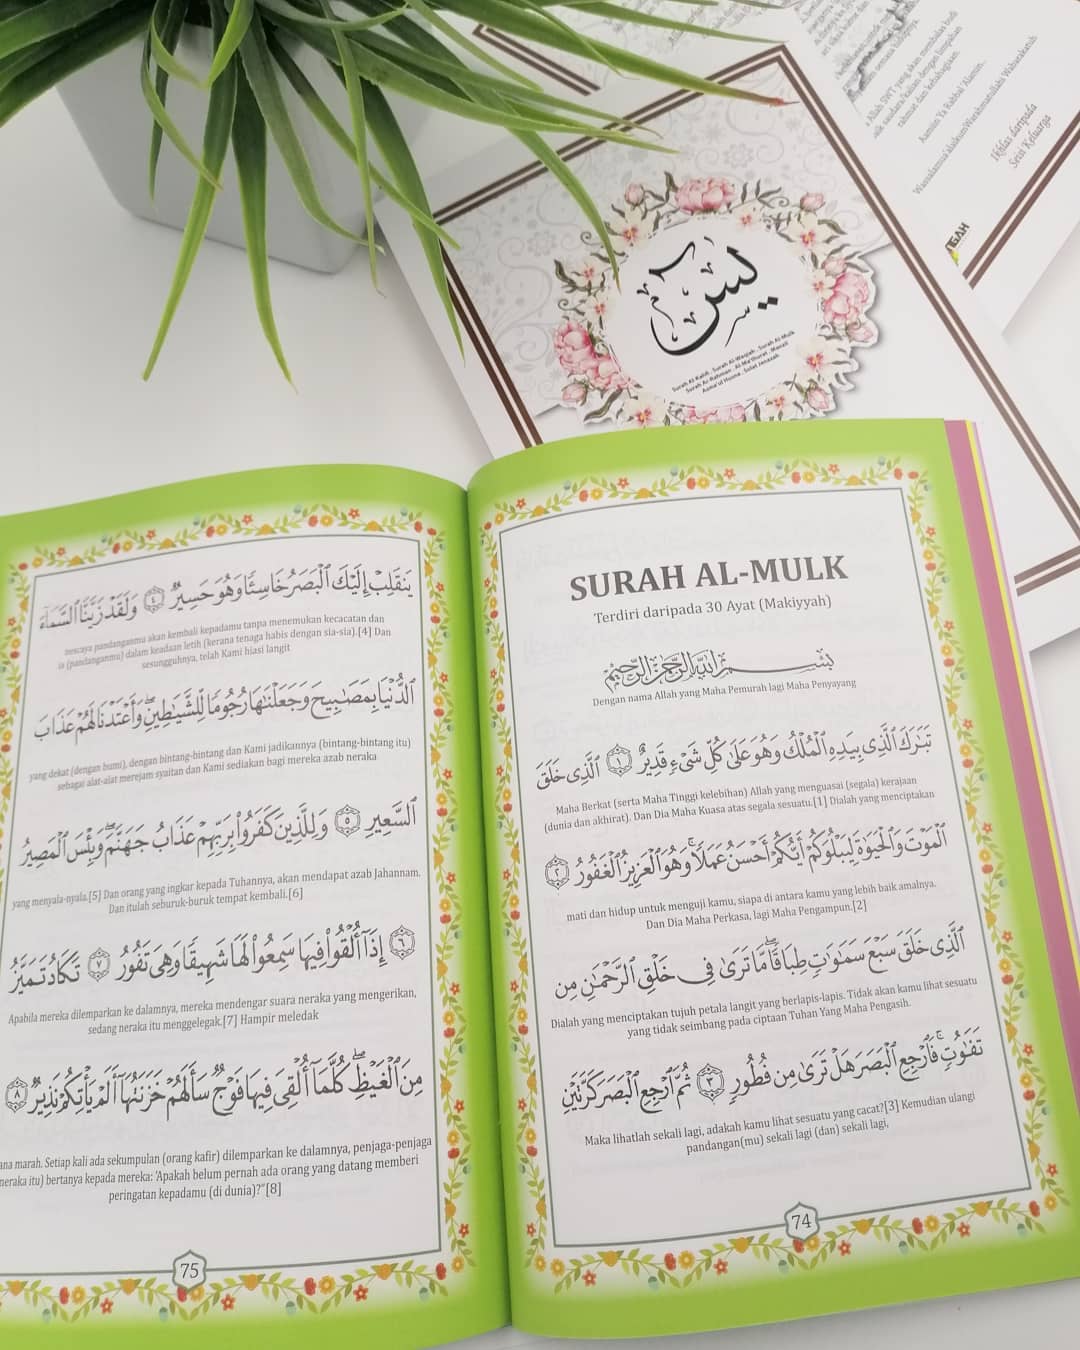 SURAH AL-MULK
Terdiri daripada 30 Ayat (Makiyyah)
بِسْمِ اللَّهِ الرَّحْمَٰنِ الرَّحِيمِ
Dengan nama Allah yang Maha Pemurah lagi Maha Penyayang
تَبَٰرَكَ ٱلَّذِى بِيَدِهِ ٱلْمُلْكُ وَهُوَ عَلَىٰ كُلِّ شَىْءٍ قَدِيرٌ ١ ٱلَّذِى خَلَقَ
Maha Berkat (serta Maha Tinggi kelebihan) Allah yang menguasai (segala) kerajaan
(dunia dan akhirat). Dan Dia Maha Kuasa atas segala sesuatu.[1] Dialah yang menciptakan
ٱلْمَوْتَ وَٱلْحَيَوٰةَ لِيَبْلُوَكُمْ أَيُّكُمْ أَحْسَنُ عَمَلًا ۚ وَهُوَ ٱلْعَزِيزُ ٱلْغَفُورُ ٢
mati dan hidup untuk menguji kamu, siapa di antara kamu yang lebih baik amalnya.
Dan Dia Maha Perkasa, lagi Maha Pengampun.[2]
ٱلَّذِى خَلَقَ سَبْعَ سَمَٰوَٰتٍ طِبَاقًا ۖ مَّا تَرَىٰ فِى خَلْقِ ٱلرَّحْمَٰنِ مِن
Dialah yang menciptakan tujuh petala langit yang berlapis-lapis. Tidak akan kamu lihat sesuatu
yang tidak seimbang pada ciptaan Tuhan Yang Maha Pengasih.
تَفَٰوُتٍ ۖ فَٱرْجِعِ ٱلْبَصَرَ هَلْ تَرَىٰ مِن فُطُورٍ ٣ ثُمَّ ٱرْجِعِ ٱلْبَصَرَ كَرَّتَيْنِ
Maka lihatlah sekali lagi, adakah kamu lihat sesuatu yang cacat?[3] Kemudian ulangi
pandangan(mu) sekali lagi (dan) sekali lagi,
74
يَنقَلِبْ إِلَيْكَ ٱلْبَصَرُ خَاسِئًا وَهُوَ حَسِيرٌ ٤ وَلَقَدْ زَيَّنَّا ٱلسَّمَآءَ
nescaya pandanganmu akan kembali kepadamu tanpa menemukan kecacatan dan
ia (pandanganmu) dalam keadaan letih (kerana tenaga habis dengan sia-sia).[4] Dan
sesungguhnya, telah Kami hiasi langit
ٱلدُّنْيَا بِمَصَٰبِيحَ وَجَعَلْنَٰهَا رُجُومًا لِّلشَّيَٰطِينِ ۖ وَأَعْتَدْنَا لَهُمْ عَذَابَ
yang dekat (dengan bumi), dengan bintang-bintang dan Kami jadikannya (bintang-bintang itu)
sebagai alat-alat merejam syaitan dan Kami sediakan bagi mereka azab neraka
ٱلسَّعِيرِ ٥ وَلِلَّذِينَ كَفَرُوا۟ بِرَبِّهِمْ عَذَابُ جَهَنَّمَ ۖ وَبِئْسَ ٱلْمَصِيرُ
yang menyala-nyala.[5] Dan orang yang ingkar kepada Tuhannya, akan mendapat azab Jahannam.
Dan itulah seburuk-buruk tempat kembali.[6]
٦ إِذَآ أُلْقُوا۟ فِيهَا سَمِعُوا۟ لَهَا شَهِيقًا وَهِىَ تَفُورُ ٧ تَكَادُ تَمَيَّزُ
Apabila mereka dilemparkan ke dalamnya, mereka mendengar suara neraka yang mengerikan,
sedang neraka itu menggelegak.[7] Hampir meledak
مِنَ ٱلْغَيْظِ ۖ كُلَّمَآ أُلْقِىَ فِيهَا فَوْجٌ سَأَلَهُمْ خَزَنَتُهَآ أَلَمْ يَأْتِكُمْ نَذِيرٌ ٨
marah. Setiap kali ada sekumpulan (orang kafir) dilemparkan ke dalamnya, penjaga-penjaga
neraka itu) bertanya kepada mereka: 'Apakah belum pernah ada orang yang datang memberi
peringatan kepadamu (di dunia)?"[8]
75
يس
Surah Al-Kahfi . Surah Al-Waqiah . Surah Al-Mulk
Surah Ar-Rahman . Al-Ma'thurat . Manzil
Asma'ul Husna . Solat Jenazah
Allah SWT yang akan membalas budi
saudara/kalian dengan limpahan
rahmat dan kebahagiaan.
Aamiin Ya Rabbal Alamin.
Wassalamua'alaikumWarahmatullahi Wabarakatuh
Ikhlas daripada
Seisi Keluarga